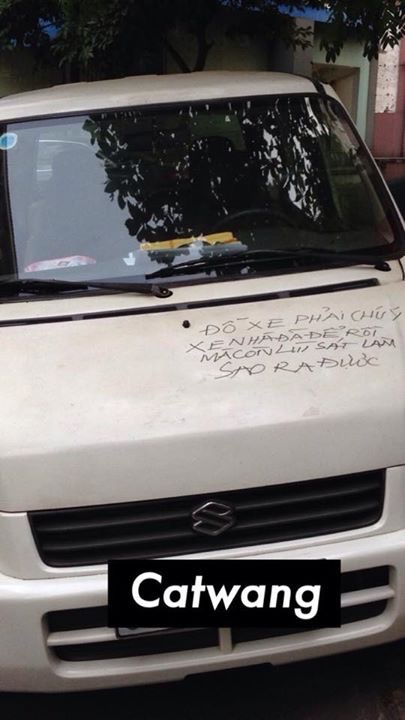 ĐỖ XE PHẢI CHÚ Ý
XE NHÀ ĐÃ ĐỂ RỒI
MÀ CÒN LÙI SÁT LÀM
SAO RA ĐƯỢC
Catwang